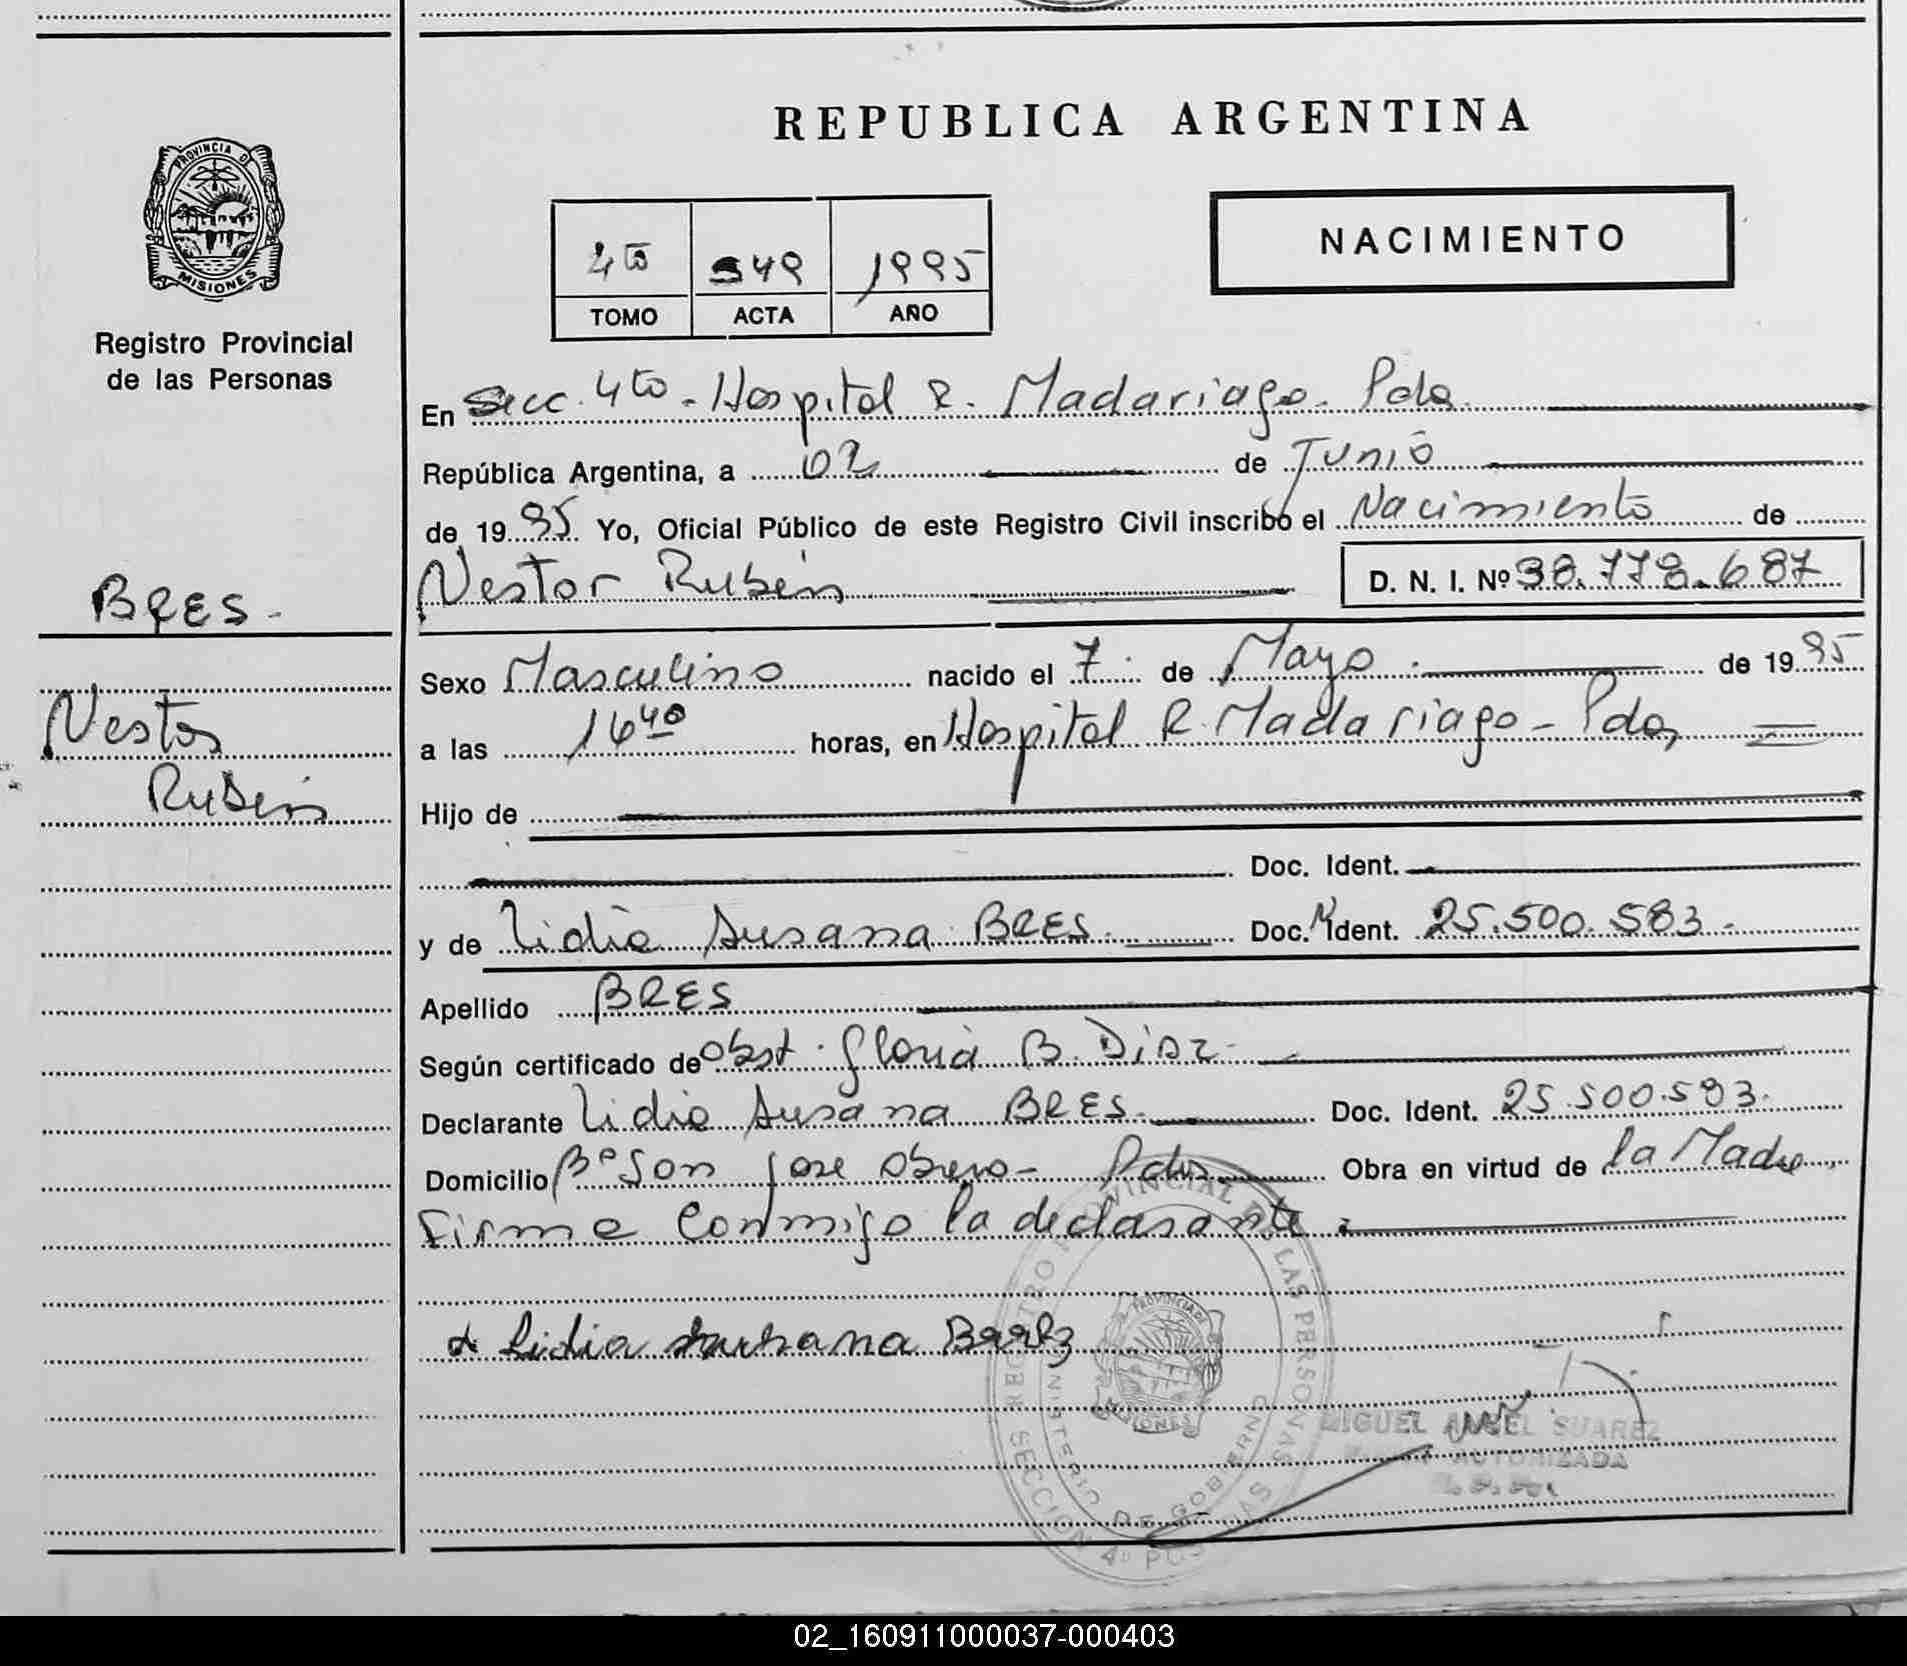 REPUBLICA ARGENTINA
PROVINCIA DE
MISIONES
Registro Provincial
de las Personas
NACIMIENTO
4to 549 1995
TOMO ACTA AÑO
En Secc. 4to - Hospital R. Madariaga - Pdas.
República Argentina, a 02 de Junio
de 1995 Yo, Oficial Público de este Registro Civil inscribo el Nacimiento de
BRES - Nestor Rubén D. N. I. Nº 38.778.687
Sexo Masculino nacido el 7 de Mayo de 1995
Nestor
a las 16 40 horas, en Hospital R. Madariaga - Pdas
Rubén
Hijo de
Doc. Ident.
y de Lidia Susana BRES. Doc. Ident. 25.500.583.
Apellido BRES
Según certificado de Obst. Gloria B. Diaz
Declarante Lidia Susana BRES. Doc. Ident. 25.500.593.
Domicilio Bº San José Obrero - Pdas. Obra en virtud de la Madre
Firma Conmigo la declarante.
Lidia Susana
REGISTRO PROVINCIAL DE LAS PERSONAS
MINISTERIO DE GOBIERNO
SECCION 4ª POSADAS
PROVINCIA DE
MISIONES
MIGUEL ANGEL SUAREZ
AUTORIZADA
02_160911000037-000403